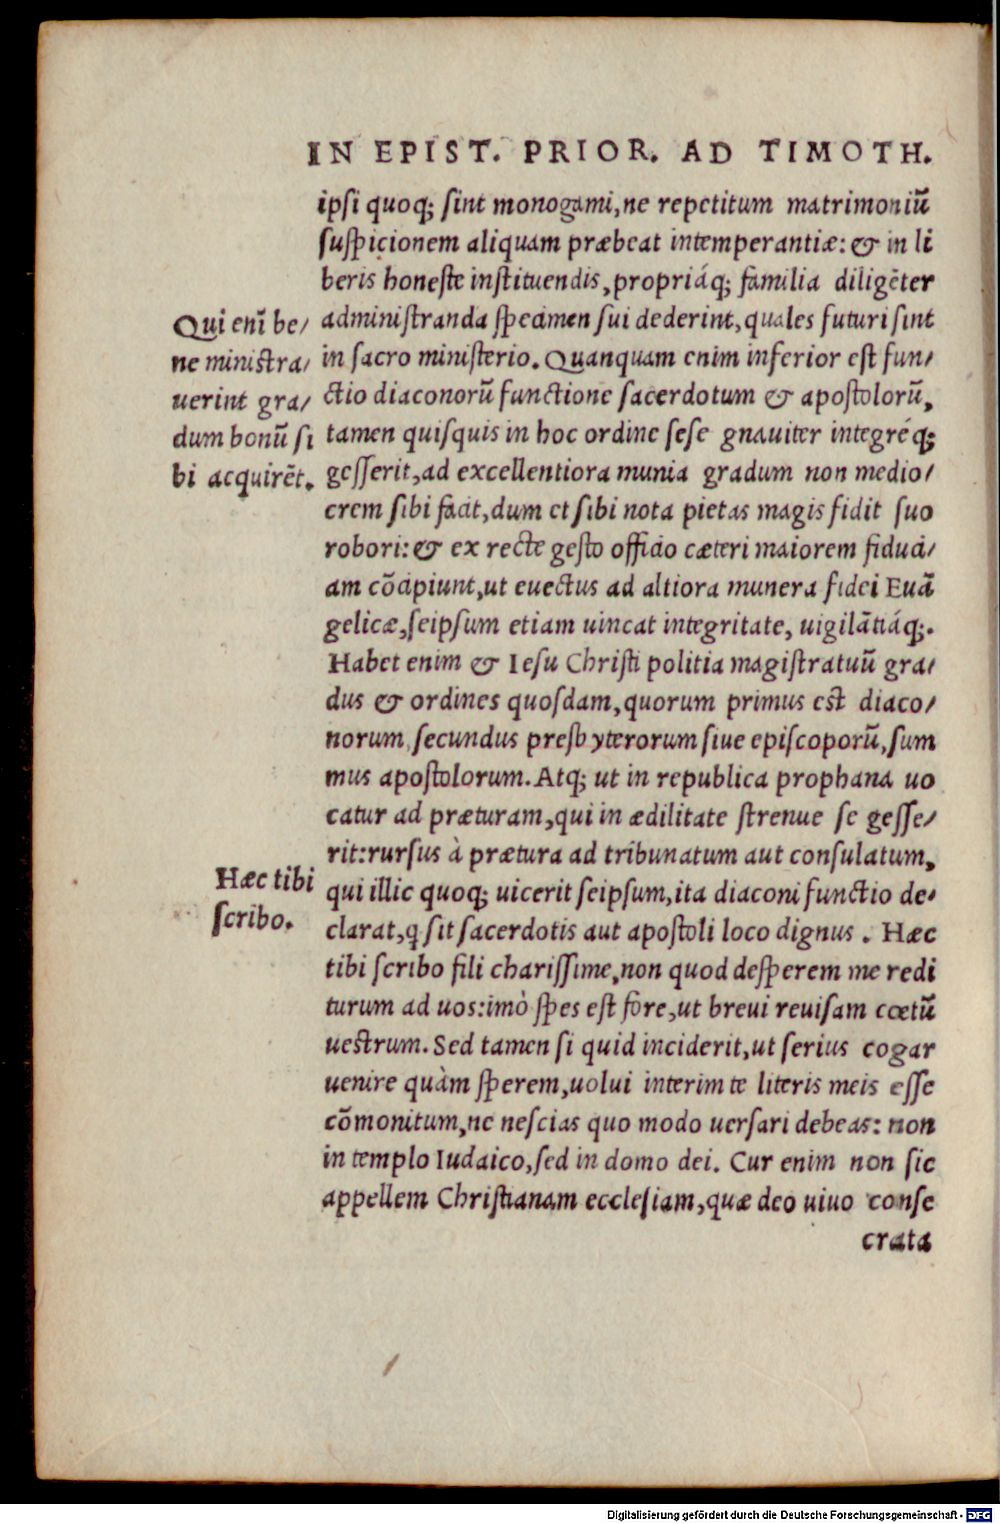 IN EPIST. PRIOR. AD TIMOTH.
ipsi quoq; sint monogami, ne repetitum matrimoniũ
suspicionem aliquam præbeat intemperantiæ: & in li
beris honeste instituendis, propriáq; familia diligẽter
administranda specimen sui dederint, quales futuri sint
in sacro ministerio. Quanquam enim inferior est fun/
ctio diaconorũ functione sacerdotum & apostolorũ,
tamen quisquis in hoc ordine sese gnauiter integréq;
gesserit, ad excellentiora munia gradum non medio/
crem sibi facit, dum et sibi nota pietas magis fidit suo
robori: & ex recte gesto officio cæteri maiorem fiduci/
am cõcipiunt, ut euectus ad altiora munera fidei Euã
gelicæ, seipsum etiam uincat integritate, uigilãtiáq;.
Habet enim & Iesu Christi politia magistratuũ gra/
dus & ordines quosdam, quorum primus est diaco/
norum, secundus presbyterorum siue episcoporũ, sum
mus apostolorum. Atq; ut in republica prophana uo
catur ad præturam, qui in ædilitate strenue se gesse/
rit: rursus à prætura ad tribunatum aut consulatum,
qui illic quoq; uicerit seipsum, ita diaconi functio de/
clarat, q sit sacerdotis aut apostoli loco dignus. Hæc
tibi scribo fili charissime, non quod desperem me redi
turum ad uos: imò spes est fore, ut breui reuisam cœtũ
uestrum. Sed tamen si quid inciderit, ut serius cogar
uenire quàm sperem, uolui interim te literis meis esse
cõmonitum, ne nescias quo modo uersari debeas: non
in templo Iudaico, sed in domo dei. Cur enim non sic
appellem Christianam ecclesiam, quæ deo uiuo conse
crata
Qui enĩ be/
ne ministra/
uerint gra/
dum bonũ si
bi acquirẽt.
Hæc tibi
scribo.
Digitalisierung gefördert durch die Deutsche Forschungsgemeinschaft - DFG